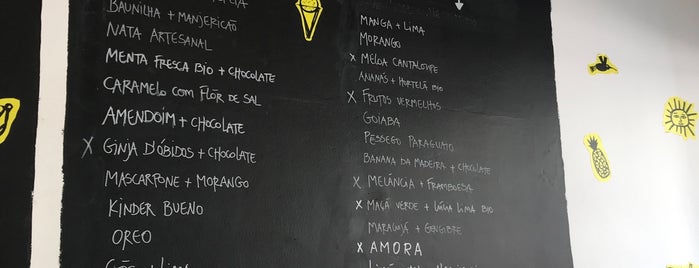 BAUNILHA + MANJERICÃO
NATA ARTESANAL
MENTA FRESCA BIO + CHOCOLATE
CARAMELO COM FLÔR DE SAL
AMENDOIM + CHOCOLATE
X GINJA D'ÓBIDOS + CHOCOLATE
MASCARPONE + MORANGO
KINDER BUENO
OREO
MANGA + LIMA
MORANGO
X MELOA CANTALOUPE
ANANÁS + HORTELÃ BIO
X FRUTOS VERMELHOS
GOIABA
PÊSSEGO PARAGUAIO
BANANA DA MADEIRA + CHOCOLATE
X MELÂNCIA + FRAMBOESA
X MAÇÃ VERDE + LIMA BIO
MARACUJÁ + GENGIBRE
X AMORA